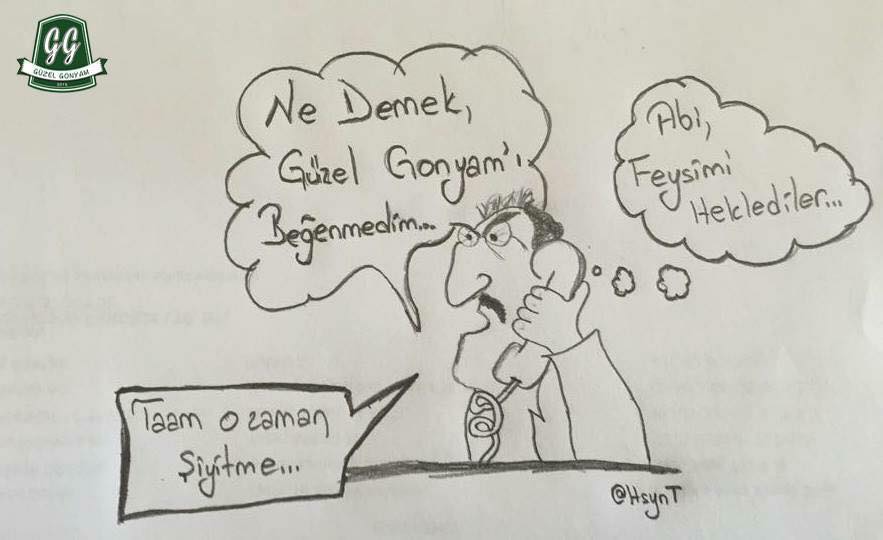 GG
GÜZEL GONYAM
Ne Demek,
Güzel Gonyam'ı
Beğenmedim...
Abi,
Feysimi
Heklediler...
Taam o zaman
Şiyitme...
@HsynT